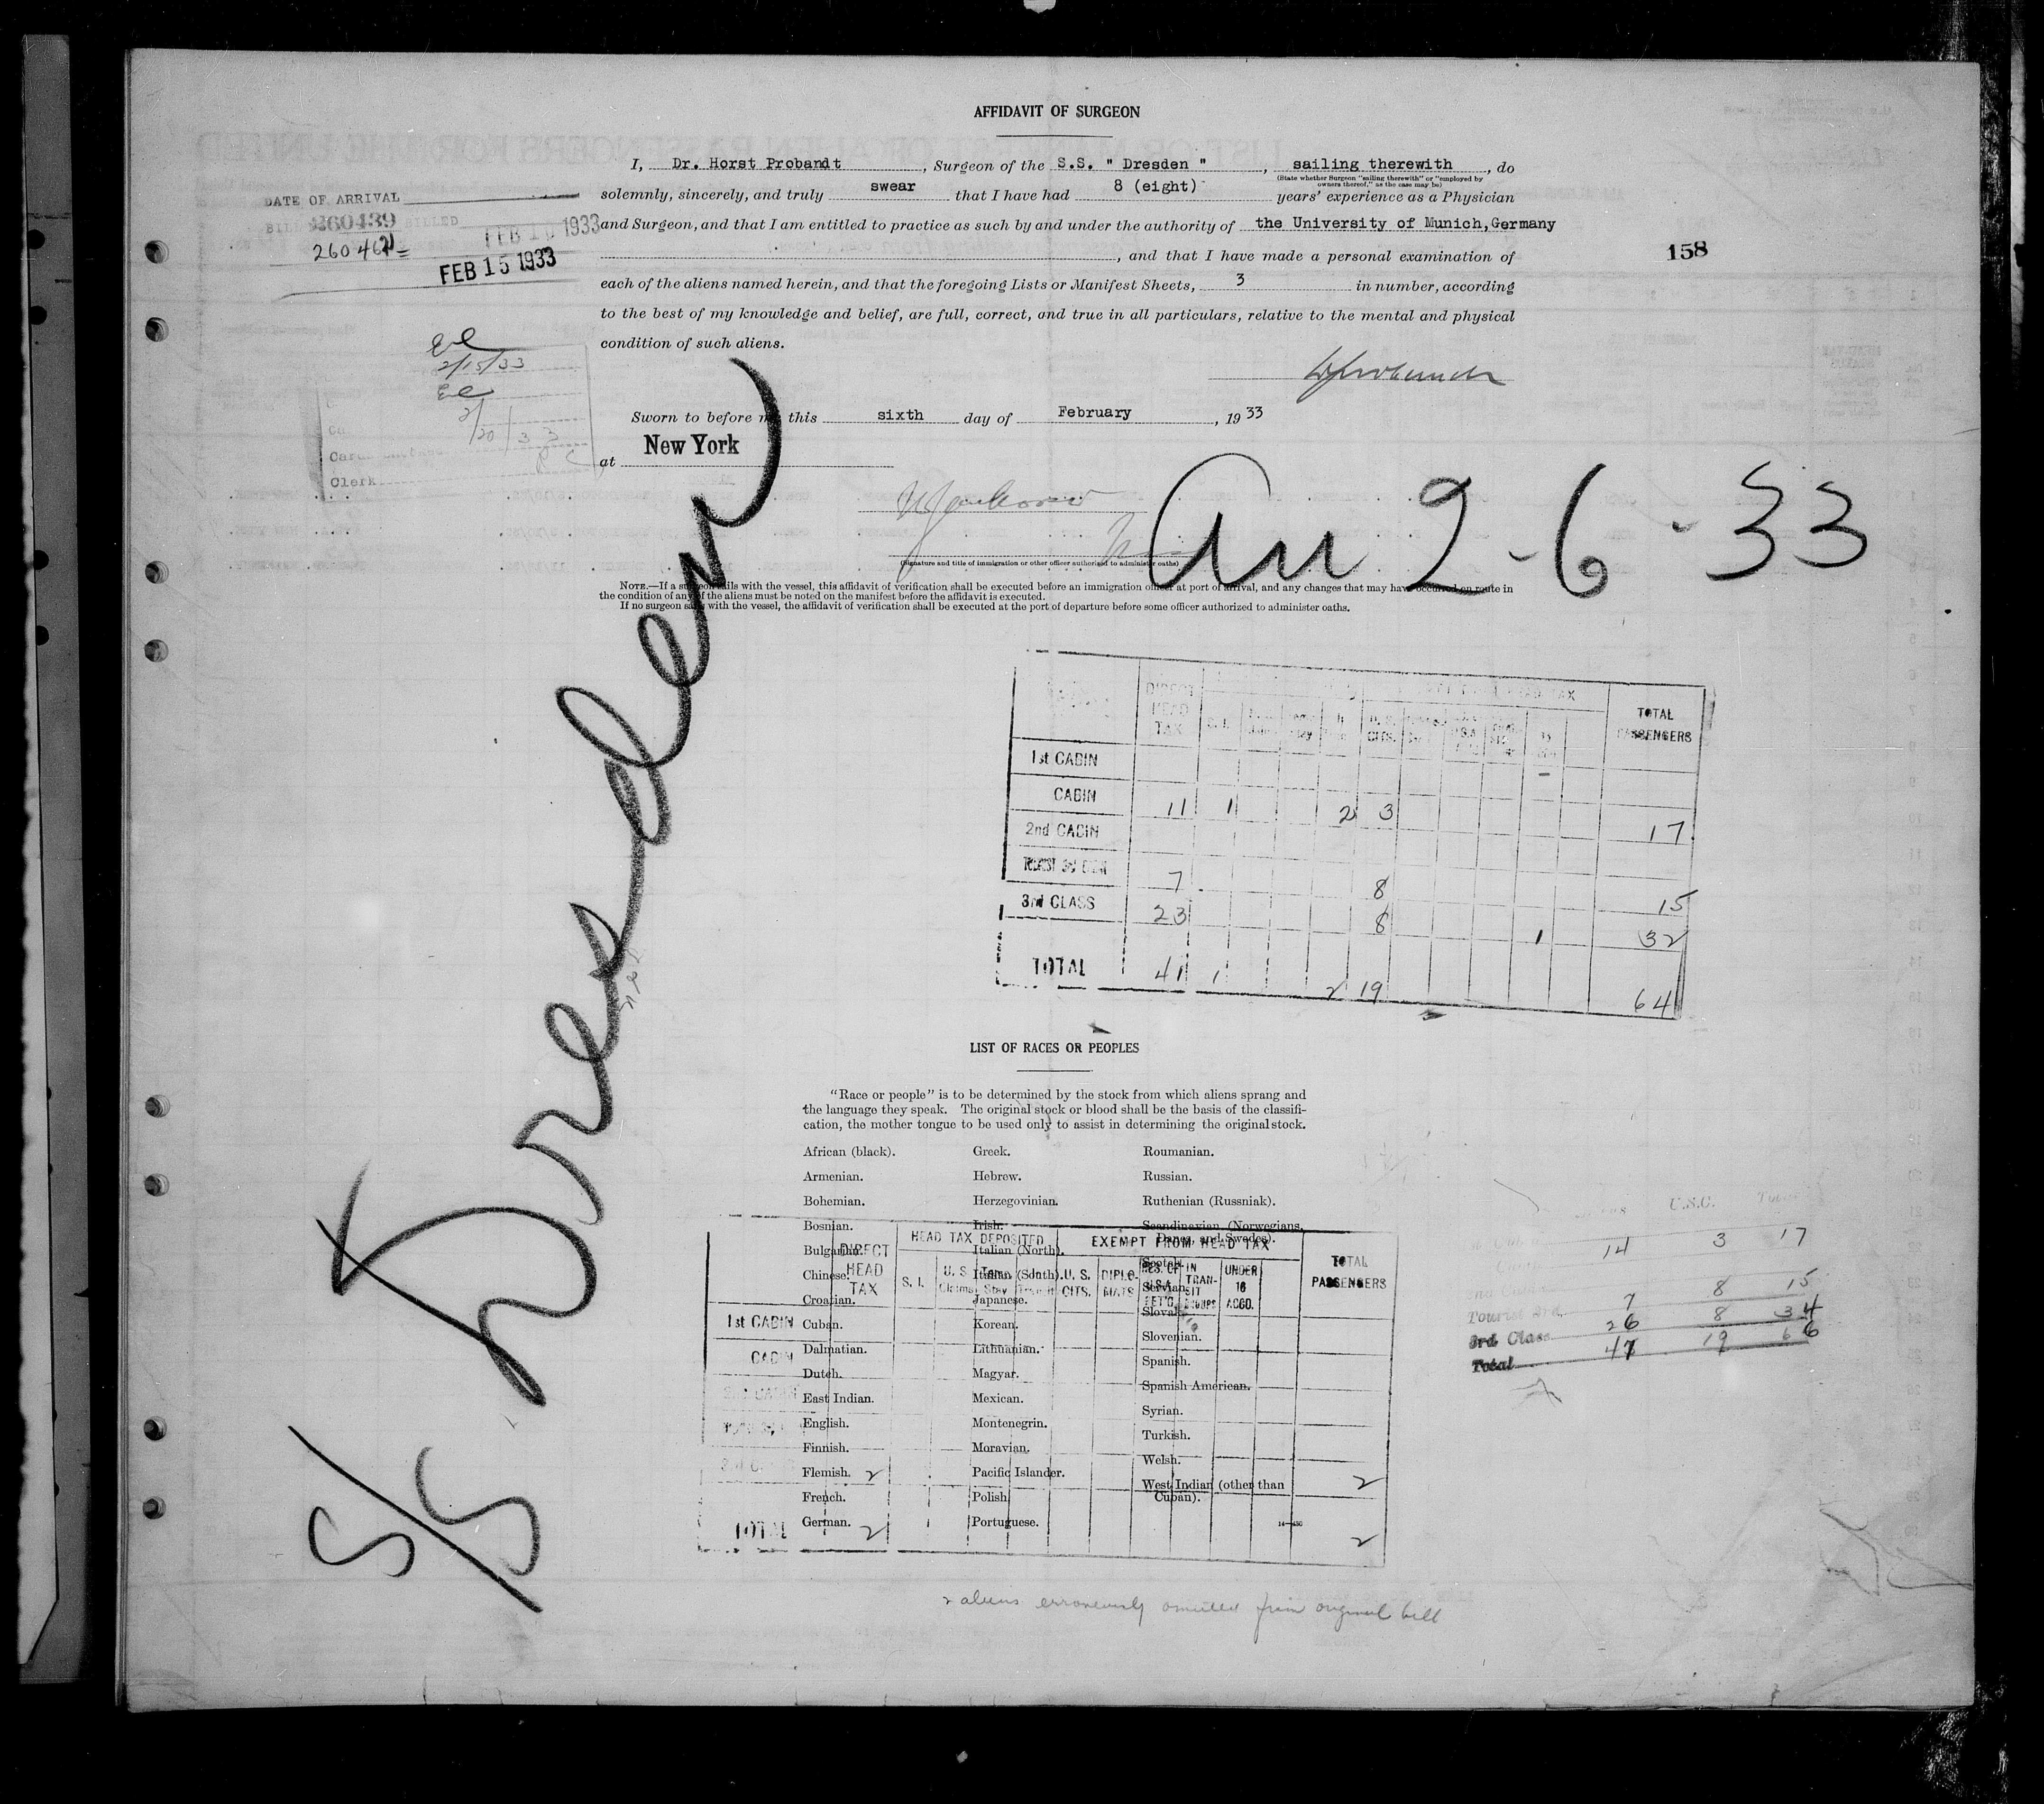 AFFIDAVIT OF SURGEON
I, Dr. Horst Probandt, Surgeon of the S.S. " Dresden ", sailing therewith, do
(State whether Surgeon "sailing therewith" or "employed by owners thereof," as the case may be)
solemnly, sincerely, and truly swear that I have had 8 (eight) years' experience as a Physician
and Surgeon, and that I am entitled to practice as such by and under the authority of the University of Munich, Germany
, and that I have made a personal examination of
each of the aliens named herein, and that the foregoing Lists or Manifest Sheets, 3 in number, according
to the best of my knowledge and belief, are full, correct, and true in all particulars, relative to the mental and physical
condition of such aliens.
DATE OF ARRIVAL
260439
FEB 10 1933
FEB 15 1933
158
2/15/33
2/20/33
Clerk
Sworn to before me this sixth day of February, 1933
at New York
(Signature and title of immigration or other officer authorized to administer oaths)
2-6-33
S/S Dresden
NOTE.—If a surgeon sails with the vessel, this affidavit of verification shall be executed before an immigration officer at port of arrival, and any changes that may have occurred en route in
the condition of any of the aliens must be noted on the manifest before the affidavit is executed.
If no surgeon sails with the vessel, the affidavit of verification shall be executed at the port of departure before some officer authorized to administer oaths.
DIRECT HEAD TAX S. I. U. S. CITS. TOTAL PASSENGERS
1st CABIN
CABIN 11 1 2 3 17
2nd CABIN
TOURIST 3rd CABIN 7 8 15
3rd CLASS 23 8 1 32
TOTAL 41 1 2 19 64
LIST OF RACES OR PEOPLES
"Race or people" is to be determined by the stock from which aliens sprang and
the language they speak. The original stock or blood shall be the basis of the classifi-
cation, the mother tongue to be used only to assist in determining the original stock.
African (black).
Armenian.
Bohemian.
Bosnian.
Bulgarian.
Chinese.
Croatian.
Cuban.
Dalmatian.
Dutch.
East Indian.
English.
Finnish.
Flemish.
French.
German.
Greek.
Hebrew.
Herzegovinian.
Irish.
Italian (North).
Italian (South).
Japanese.
Korean.
Lithuanian.
Magyar.
Mexican.
Montenegrin.
Moravian.
Pacific Islander.
Polish.
Portuguese.
Roumanian.
Russian.
Ruthenian (Russniak).
Scandinavian (Norwegians,
Danes, and Swedes).
Scotch.
Servian.
Slovak.
Slovenian.
Spanish.
Spanish American.
Syrian.
Turkish.
Welsh.
West Indian (other than
Cuban).
DIRECT HEAD TAX HEAD TAX DEPOSITED EXEMPT FROM HEAD TAX TOTAL PASSENGERS
S. I. U. S. CITS. DIPLOMATS IN TRANSIT GROUPS UNDER 16 ACCD.
1st CABIN
CABIN
2 2
TOTAL 2 2
U.S.C.
14 3 17
Tourist 3rd 7 8 15
3rd Class 26 8 34
Total 47 19 66
2 aliens erroneously omitted from original bill